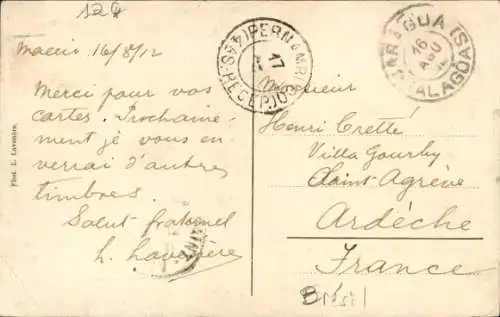 124
Maceio 16/8/12
Merci pour vos
cartes. Prochaine-
ment je vous en-
verrai d'autres
timbres.
Salut fraternel
L. Lavenère
Phot. L. Lavenère
(4ªS) PERNAMBUCO (4ªS)
17
RECEPÇÃO
JARAGUÁ
16
AGO
ALAGOAS
Monsieur
Henri Cretté
Villa Gourby
Saint-Agrève
Ardèche
France
Brésil